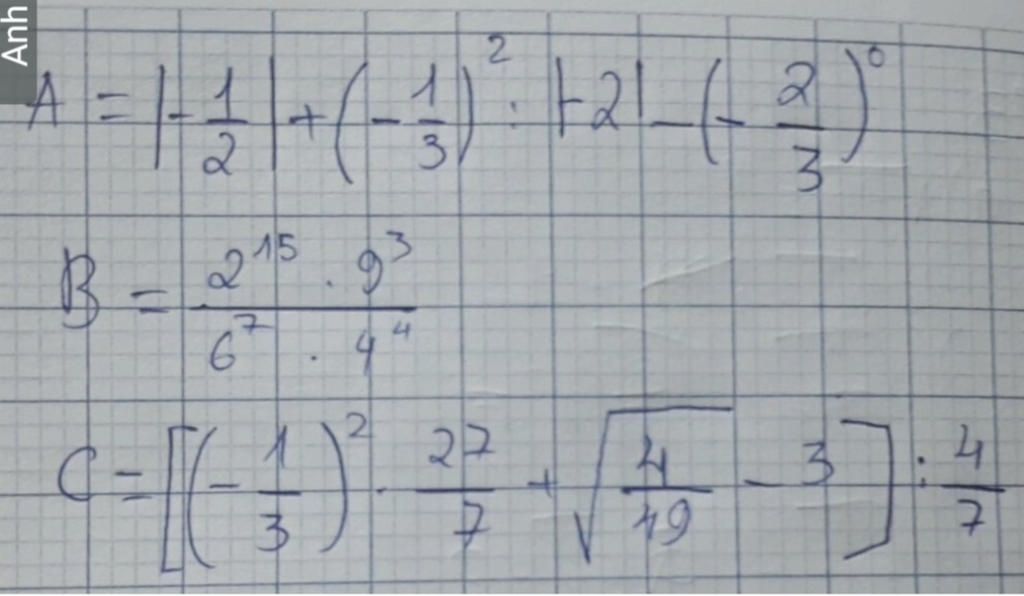 Anh
A = |-1/2| + (-1/3)² : |-2| - (-2/3)⁰
B = (2¹⁵ . 9³)/(6⁷ . 4⁴)
C = [(-1/3)² . 27/7 + √(4/49) - 3] : 4/7